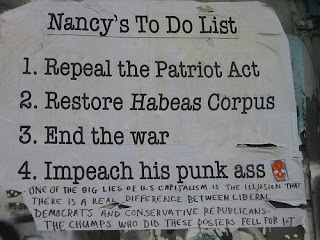 Nancy's To Do List
1. Repeal the Patriot Act
2. Restore Habeas Corpus
3. End the war
4. Impeach his punk ass
ONE OF THE BIG LIES OF U.S. CAPITALISM IS THE ILLUSION THAT
THERE IS A REAL DIFFERENCE BETWEEN LIBERAL
DEMOCRATS AND CONSERVATIVE REPUBLICANS.
THE CHUMPS WHO DID THESE POSTERS FELL FOR IT